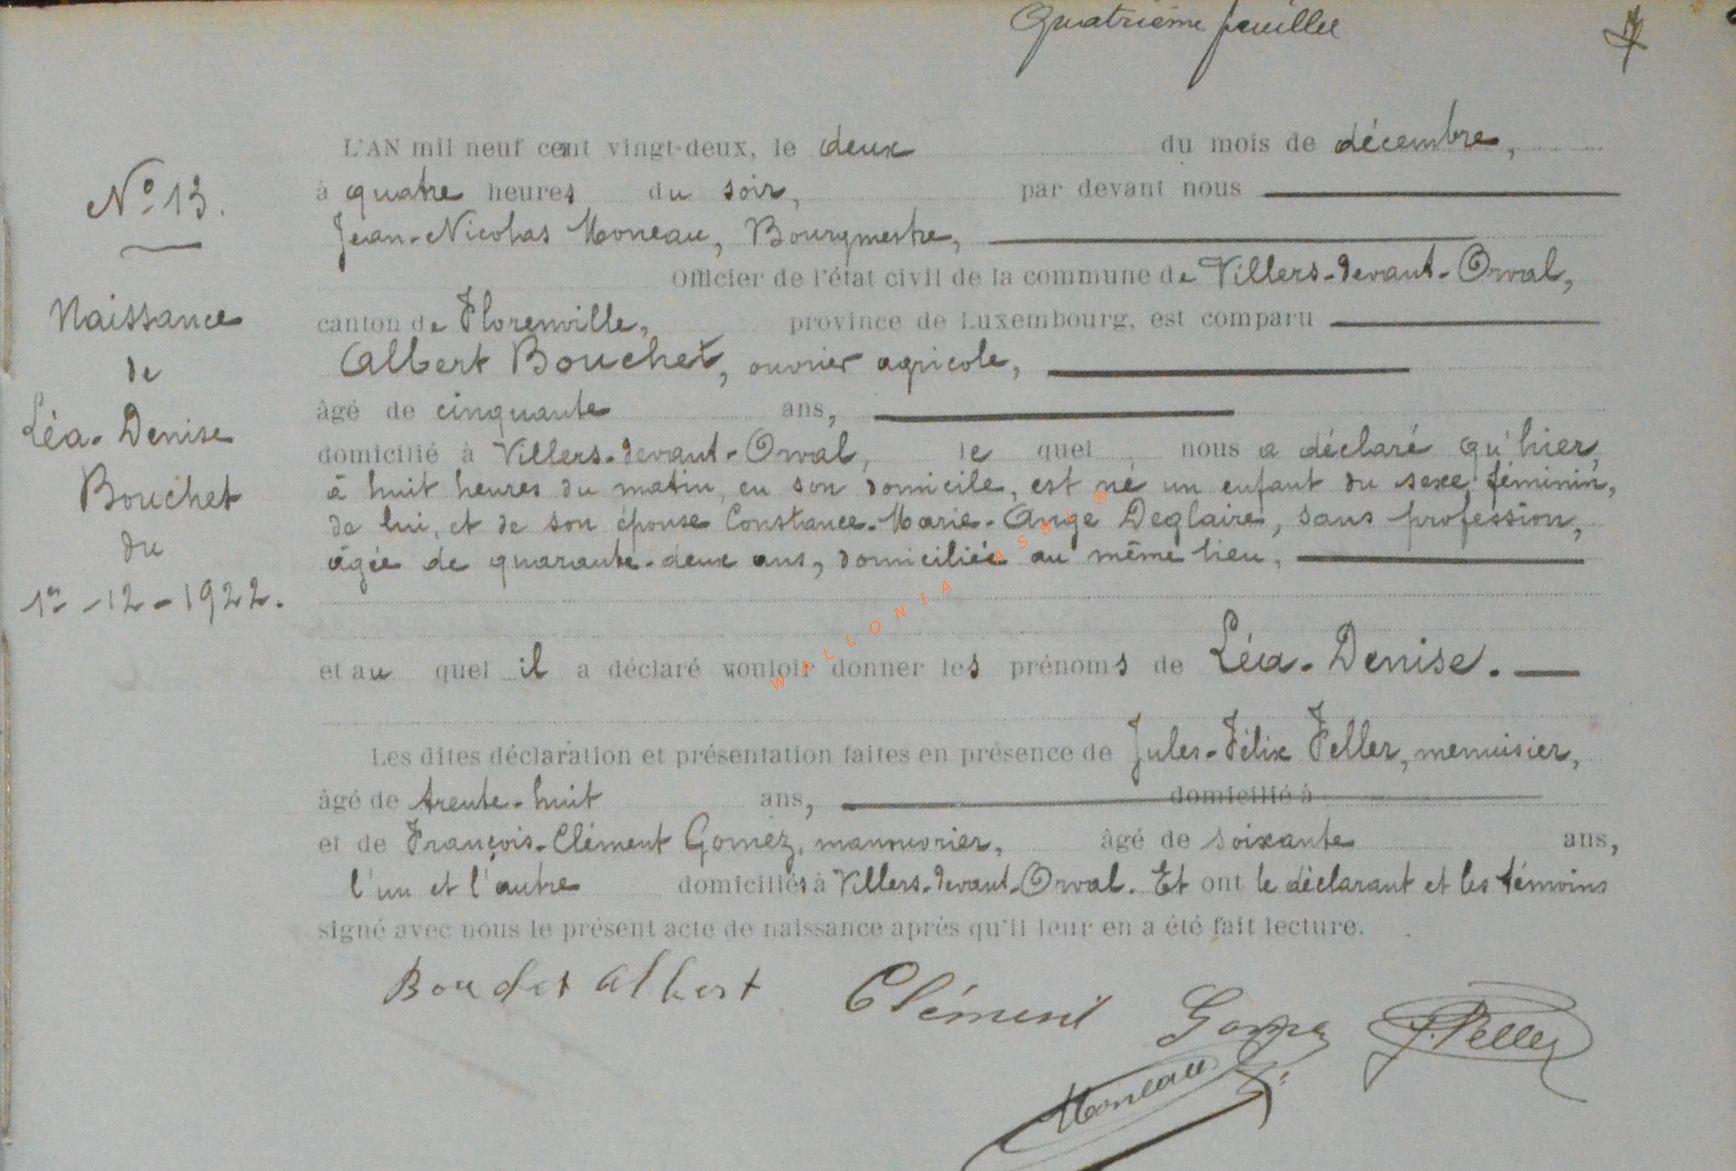 Quatrième feuillet
L'AN mil neuf cent vingt-deux, le deux du mois de décembre,
à quatre heures du soir, par devant nous
Jean-Nicolas Moneau, Bourgmestre,
Officier de l'état civil de la commune de Villers-devant-Orval,
canton de Florenville, province de Luxembourg, est comparu
Albert Bouchet, ouvrier agricole,
âgé de cinquante ans,
domicilié à Villers-devant-Orval, le quel nous a déclaré qu'hier,
à huit heures du matin, en son domicile, est né un enfant du sexe féminin,
de lui, et de son épouse Constance-Marie-Ange Deglaire, sans profession,
âgée de quarante-deux ans, domiciliée au même lieu,
et au quel il a déclaré vouloir donner les prénoms de Léa-Denise.
Les dites déclaration et présentation faites en présence de Jules-Félix Feller, menuisier,
âgé de trente-huit ans, domicilié à
et de François-Clément Gomez, manouvrier, âgé de soixante ans,
l'un et l'autre domiciliés à Villers-devant-Orval. Et ont le déclarant et les témoins
signé avec nous le présent acte de naissance après qu'il leur en a été fait lecture.
Nº 13.
Naissance
de
Léa-Denise
Bouchet
du
1er-12-1922.
Bouchet Albert Clément Gomez J. Feller
Moneau
WALLONIA ASBL ®